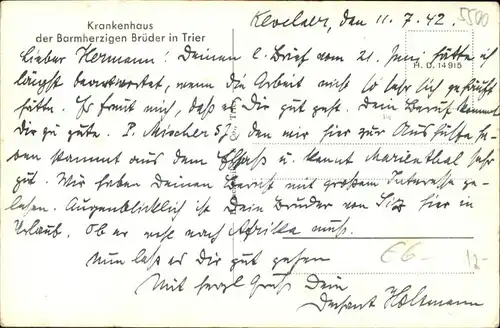 Krankenhaus
der Barmherzigen Brüder in Trier
Kevelaer, den 11.7.42
5500
H. D. 14915
Lieber Hermann! Deinen l. Brief vom 21. Juni hätte ich
längst beantwortet, wenn die Arbeit nicht so sehr sich gehäuft
hätte. Es freut mich, daß es Dir gut geht. Dein Beruf kommt
Dir zu gute. P. SJ, den wir hier zur Aushilfe ha-
ben stammt aus dem Elsaß u. kennt Marienthal sehr
gut. Wir haben Deinen Bericht mit großem Interesse ge-
lesen. Augenblicklich ist Dein Bruder von hier in
Urlaub. Ob er wohl nach Afrika muß.
Nun laß es Dir gut gehen
Mit herzl Gruß Dein
Dechant Holtmann
E6-
12-